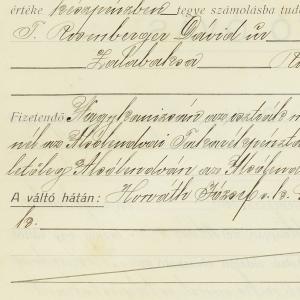 értéke készpénzben tegye számolásba tud
T. Rosenberger Dávid úr
Zalabaksa
Fizetendő Nagykanizsán az osztrák m
nél az Alsólendvai Takarékpénztá
letőleg Alsólendván az Alsólend
A váltó hátán: Horváth József s. k.
k.